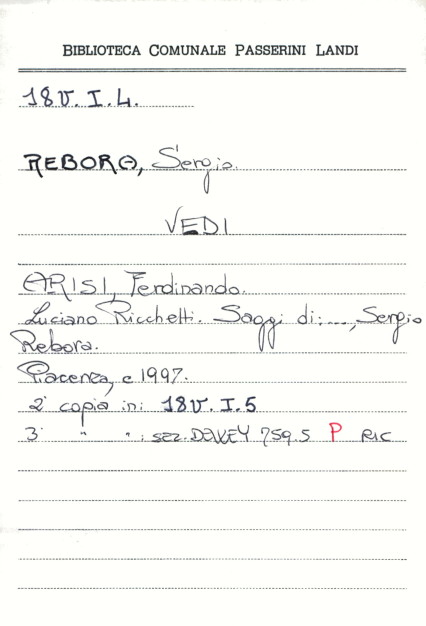 BIBLIOTECA COMUNALE PASSERINI LANDI
18V. I. 4.
REBORA, Sergio.
VEDI
ARISI, Ferdinando.
Luciano Ricchetti. Saggi di: ..., Sergio
Rebora.
Piacenza, c 1997.
2ª copia in: 18V. I. 5
3ª " " : sez. DEWEY 759.5 P RIC